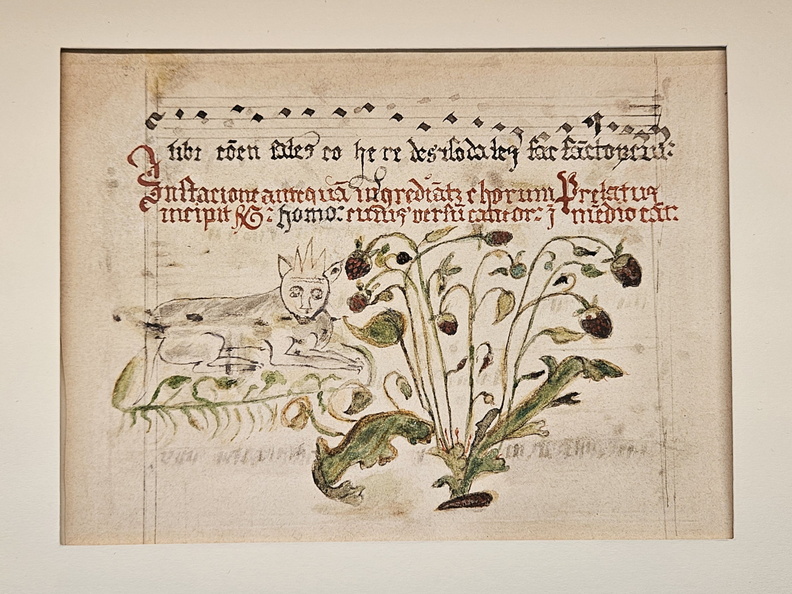 tibi cōen sales co he re des sodales fac sanctorum:
In stacione anteq̄uā ingrediat̄ chorum Prelatus
incipit ℟: homo: cuius versū canto2: ī medio cāt: